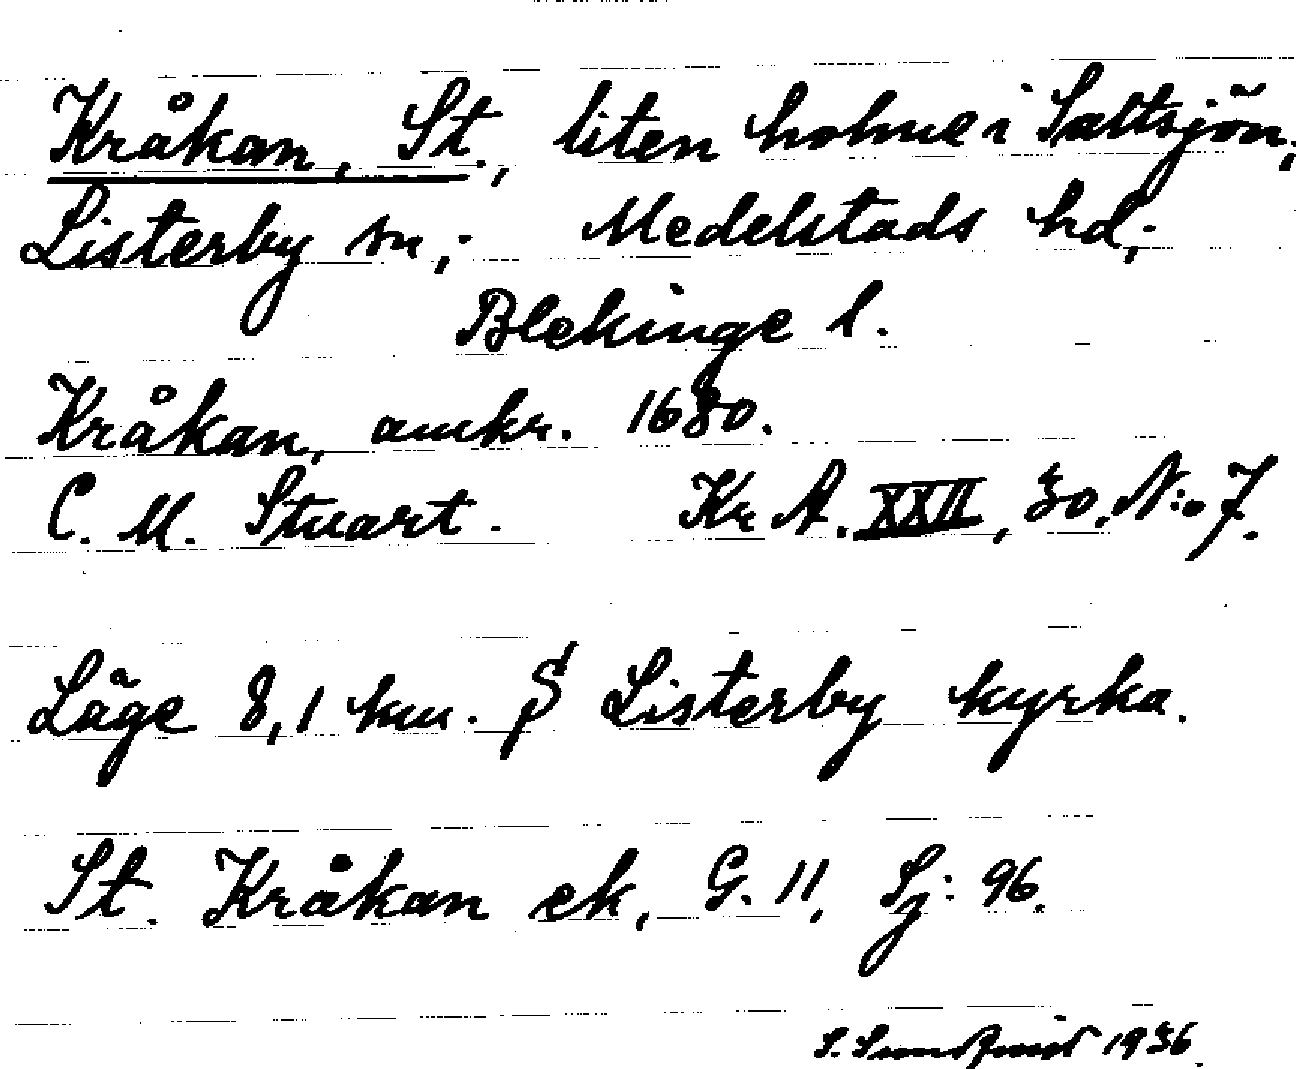 Kråkan, St., liten holme i Saltsjön,
Listerby sn,; Medelstads hd,;
Blekinge l.
Kråkan, amkr. 1680.
C. M. Stuart. Kr A. XXII, 30, N:o 7.
Läge 8,1 km. S Listerby kyrka.
St. Kråkan ek, G. 11, Sj: 96.
S. 1936.